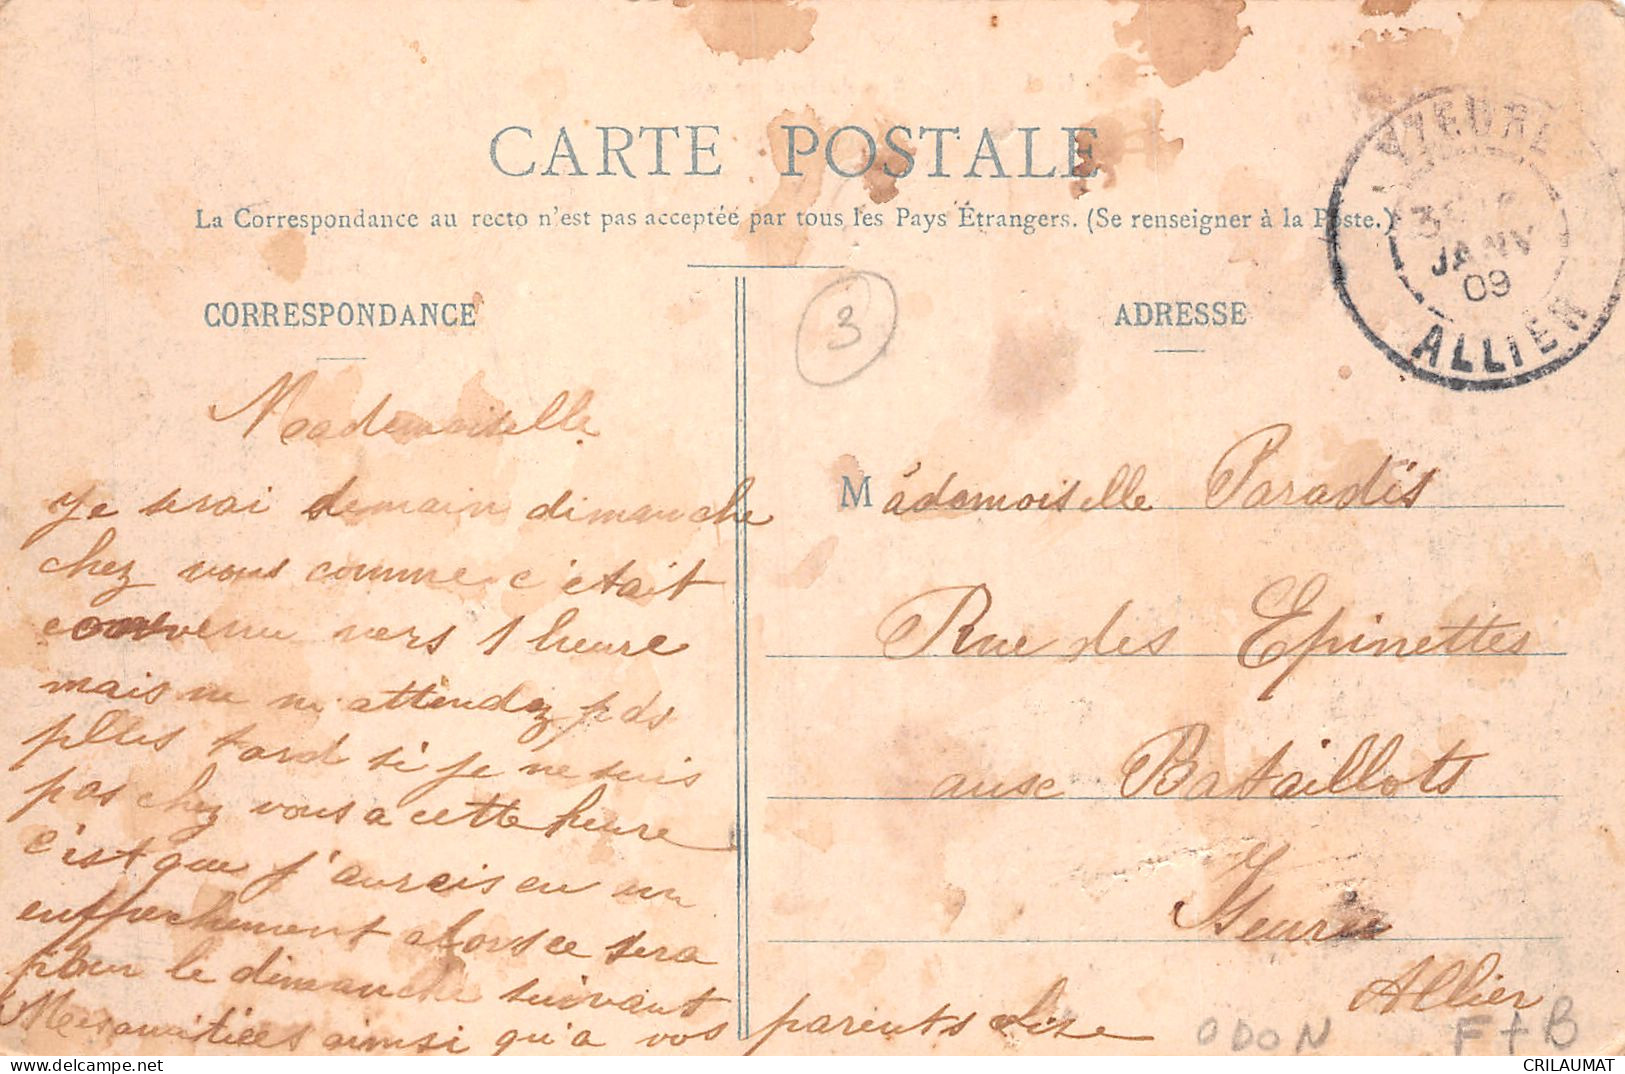 CARTE POSTALE
La Correspondance au recto n'est pas acceptée par tous les Pays Étrangers. (Se renseigner à la Poste.)
YZEURE
3
JANV
09
ALLIER
CORRESPONDANCE
3
ADRESSE
Mademoiselle
Je serai demain dimanche
chez vous comme c'etait
convenu vers 1 heure
mais ne m'attendez pas
plus tard si je ne suis
pas chez vous a cette heure
c'est que j'aurais eu un
enffrechement alors ce sera
pour le dimanche suivant
Mes amitiées ainsi qu'a vos parents Lise
Mademoiselle Paradis
Rue des Epinettes
aux Bataillots
Yzeure
Allier
ODON F+B
CRILAUMAT